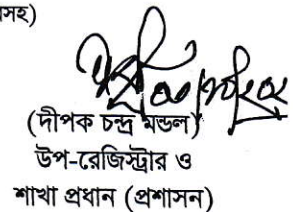 সহ)
(দীপক চন্দ্র মন্ডল)
উপ-রেজিস্ট্রার ও
শাখা প্রধান (প্রশাসন)